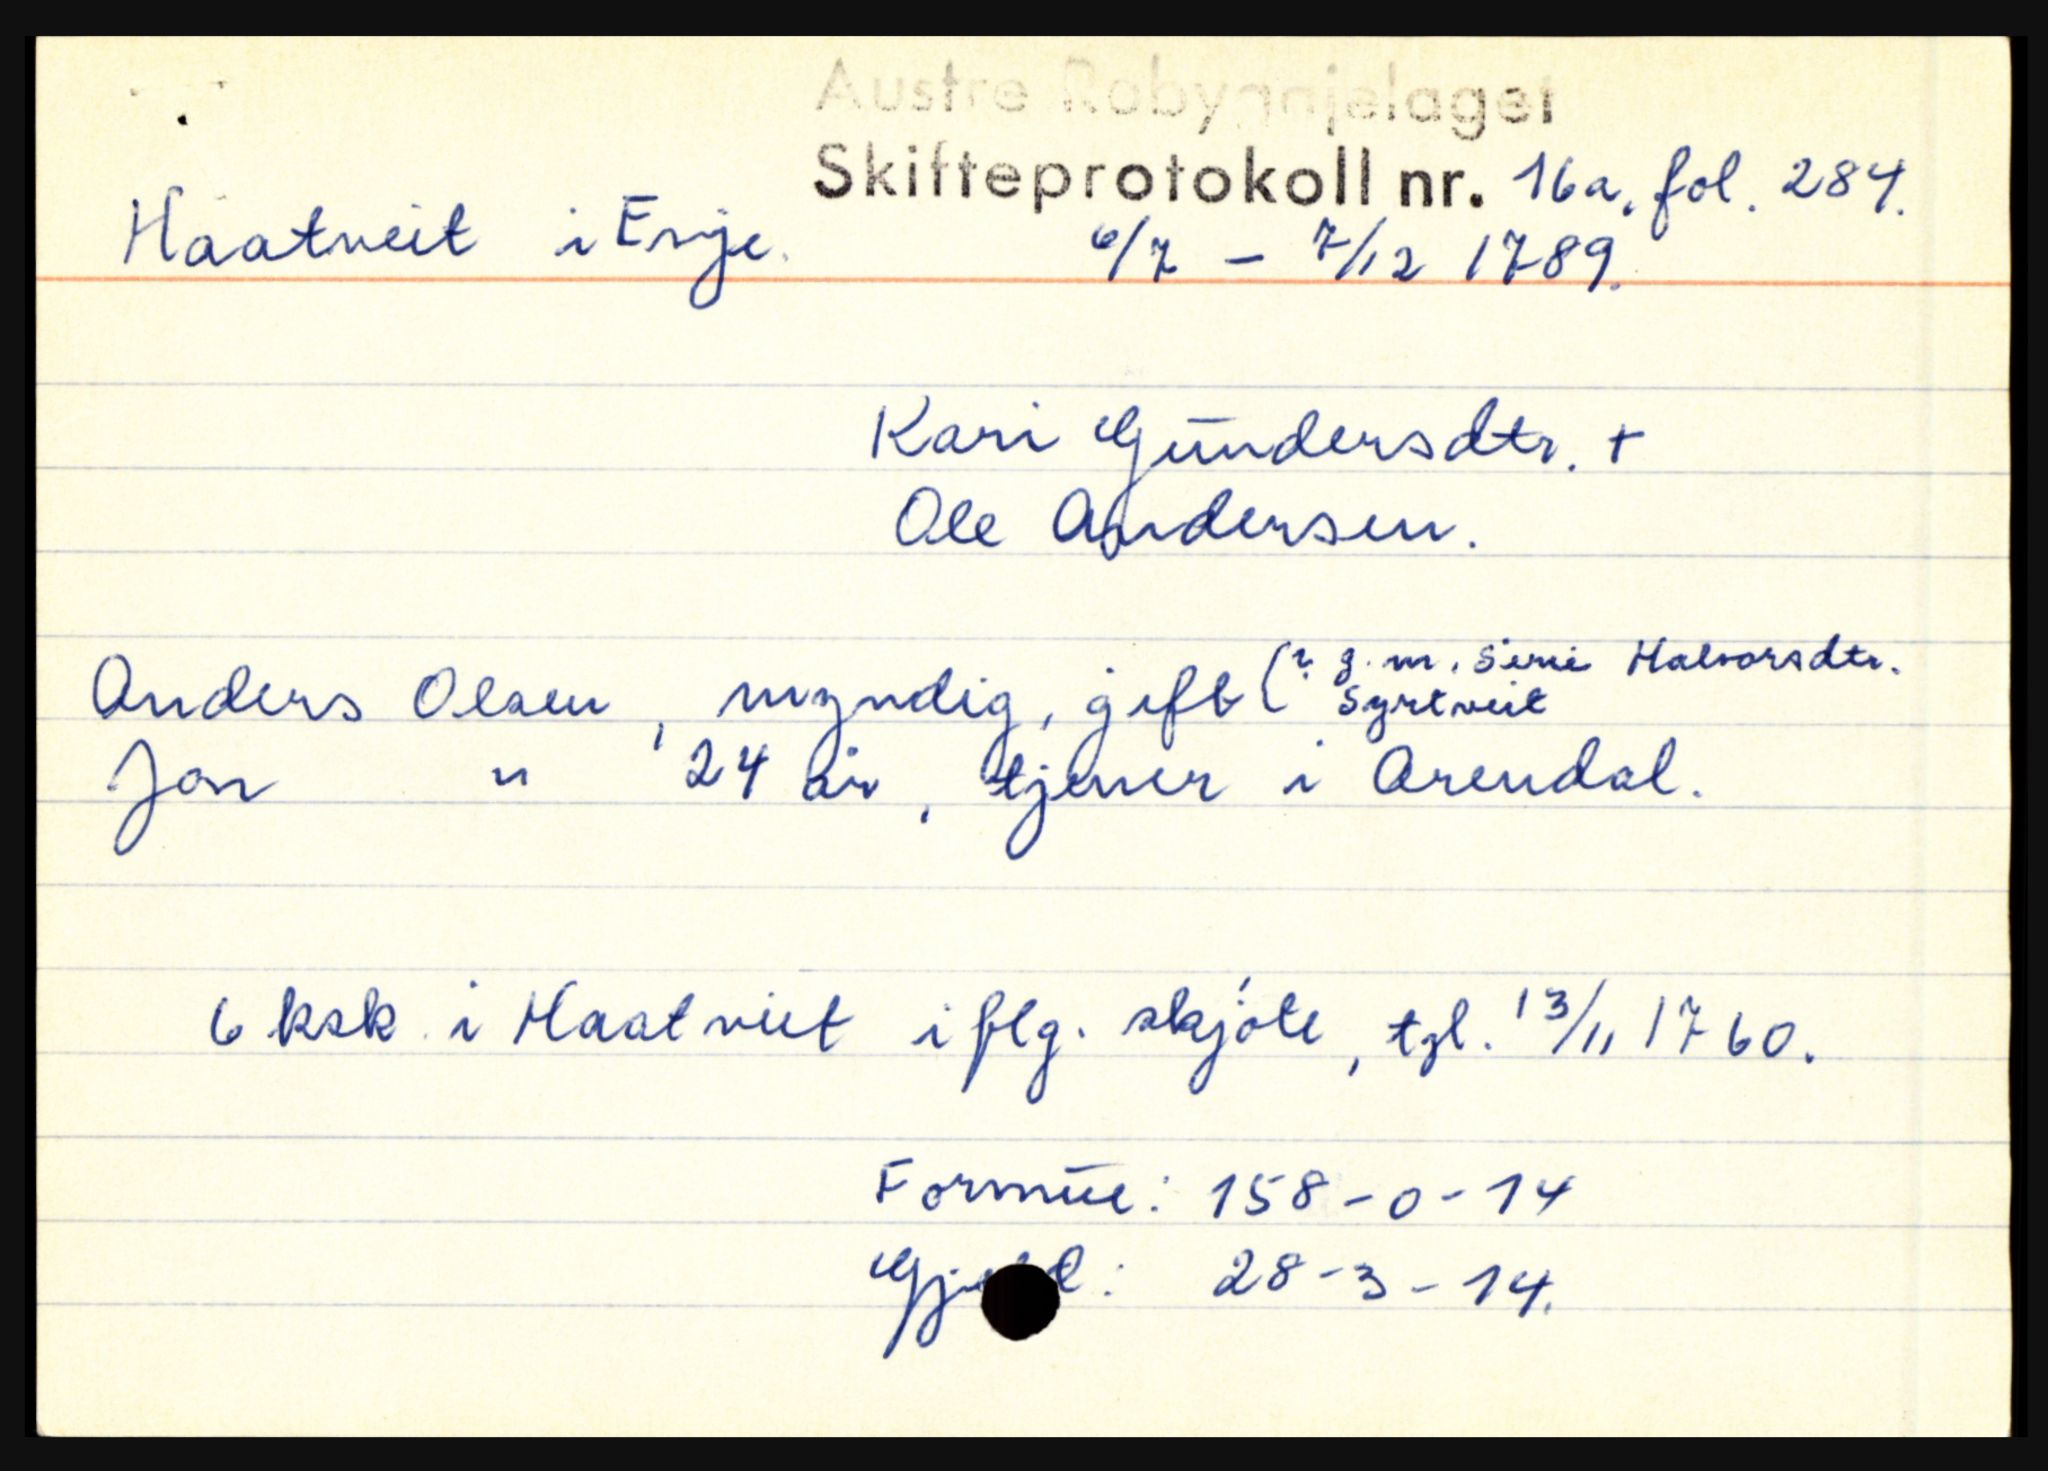 Austre Robyggjelaget
Skifteprotokoll nr. 16a, fol. 284.
Haatveit i Evje. 6/7 - 7/12 1789.
Kari Gundersdtr. +
Ole Andersen.
Anders Olsen, myndig, gift (? g. m. Seni Halvorsdtr.
Syrtveit
Jon " 24 år, tjener i Arendal.
6 ksk. i Haatveit iflg. skjøte, tgl. 13/11 1760.
Formue: 158-0-14
Gjeld: 28-3-14.